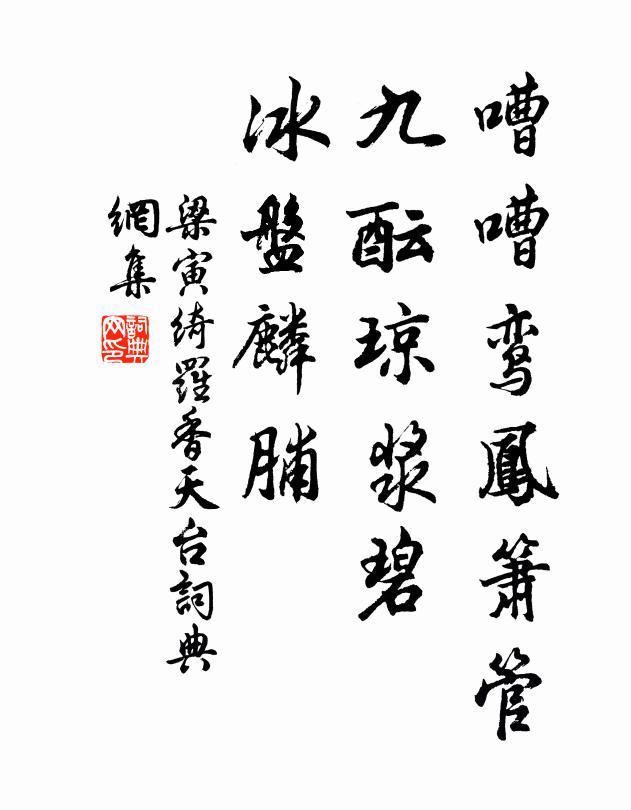 嘈嘈鸾鳳箫管
九酝琼浆碧
冰盤麟脯
梁寅绮羅香天台詞典
網集
詞典
网印